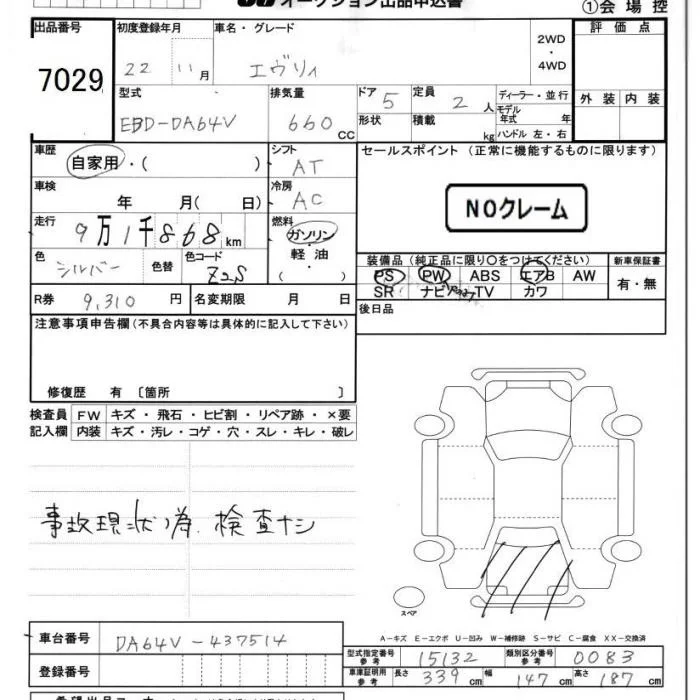 オークション出品申込書
①会場控
出品番号
7029
初度登録年月
22 11月
車名・グレード
エヴリィ
2WD
・
4WD
評価点
外装 内装
型式
EBD-DA64V
排気量
660 CC
ドア 5
形状
定員 2 人
積載 kg
ディーラー・並行
モデル年式 年
ハンドル 左・右
車歴
自家用・( )
シフト
AT
車検
年 月( 日)
冷房
AC
走行
9万1千868km
燃料
ガソリン・
軽油・
( )
色
シルバー
色替
色コード
Z2S
R券 9,310 円
名変期限 月 日
セールスポイント (正常に機能するものに限ります)
NOクレーム
装備品(純正品に限り○をつけてください)
PS PW ABS エアB AW
SR ナビ TV カワ
新車保証書
有・無
後日品
注意事項申告欄(不具合内容等は具体的に記入して下さい)
修復歴 有 〔箇所 〕
検査員記入欄
FW キズ・飛石・ヒビ割・リペア跡・×要
内装 キズ・汚レ・コゲ・穴・スレ・キレ・破レ
事故現状の為 検査ナシ
スペア
A-キズ E-エクボ U-凹み W-補修跡 S-サビ C-腐食 XX-交換済
車台番号
DA64V-437514
登録番号
型式指定番号参考 15132
類別区分番号参考 0083
車庫証明用参考 長さ 339cm 幅 147cm 高さ 187cm